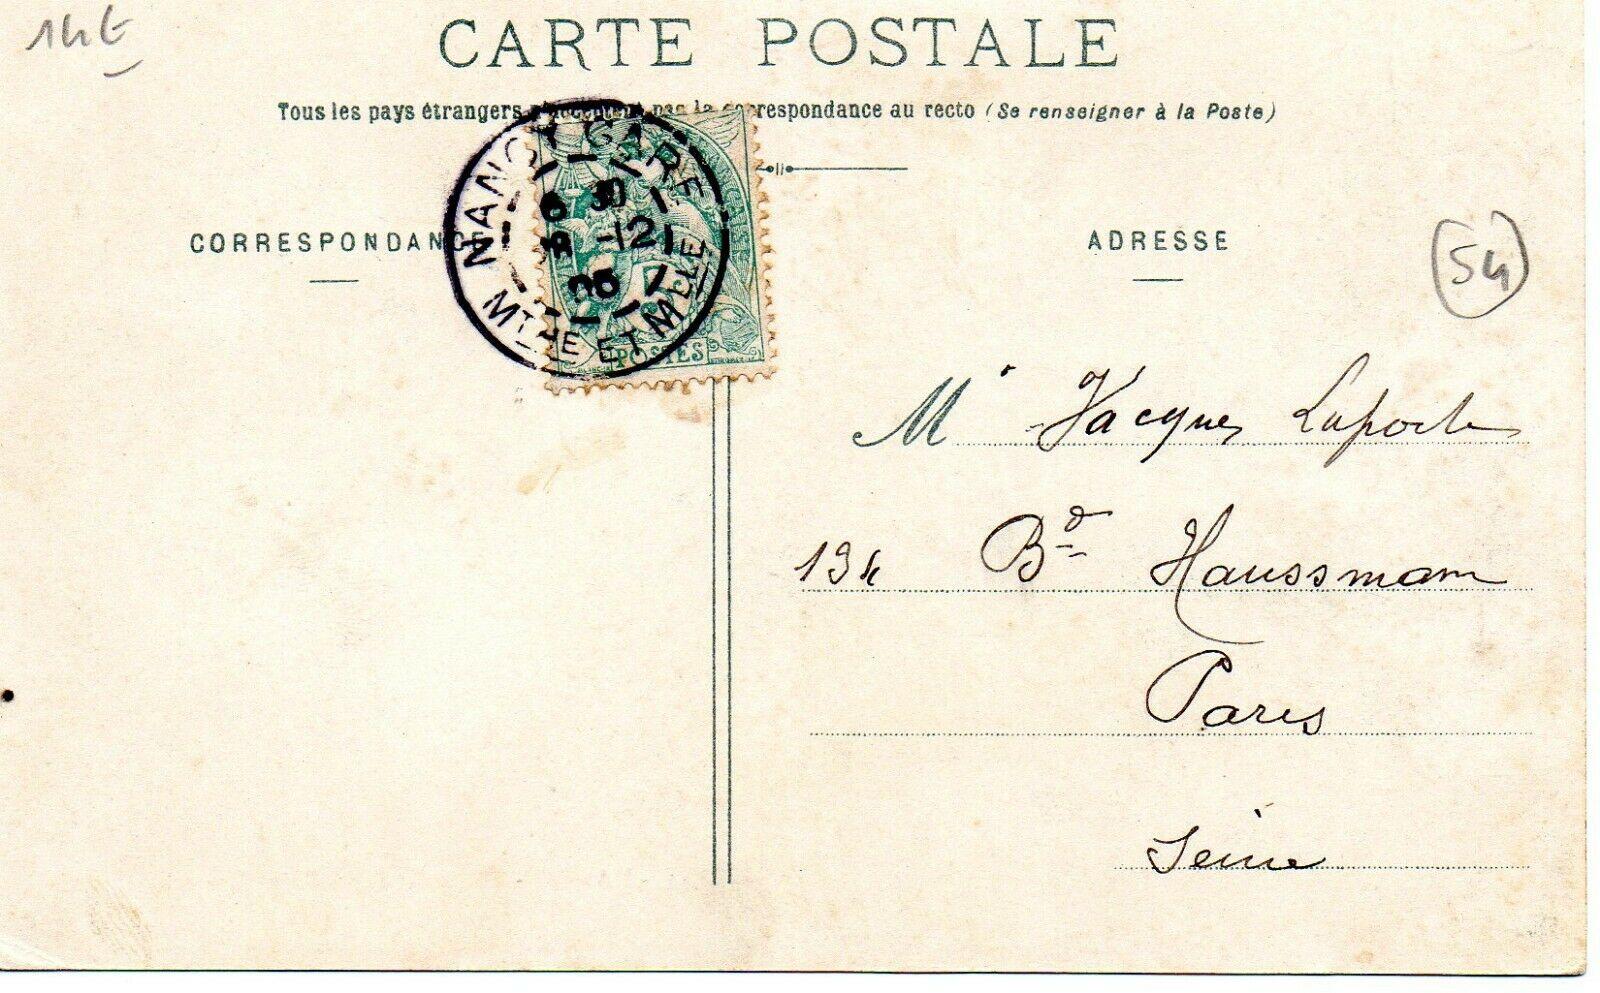 14€
CARTE POSTALE
Tous les pays étrangers n'acceptent pas la correspondance au recto (Se renseigner à la Poste)
NANCY GARE
6 30
-12
05
MTHE ET MLLE
POSTES
CORRESPONDANCE
ADRESSE
54
M r Jacques Laporte
134 Bd Haussmann
Paris
Seine